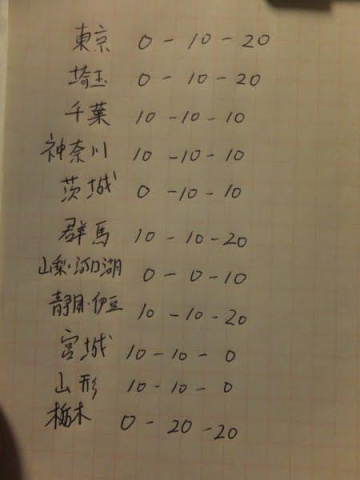 東京 0-10-20
埼玉 0-10-20
千葉 10-10-10
神奈川 10-10-10
茨城 0-10-10
群馬 10-10-20
山梨・河口湖 0-0-10
静岡・伊豆 10-10-20
宮城 10-10-0
山形 10-10-0
栃木 0-20-20